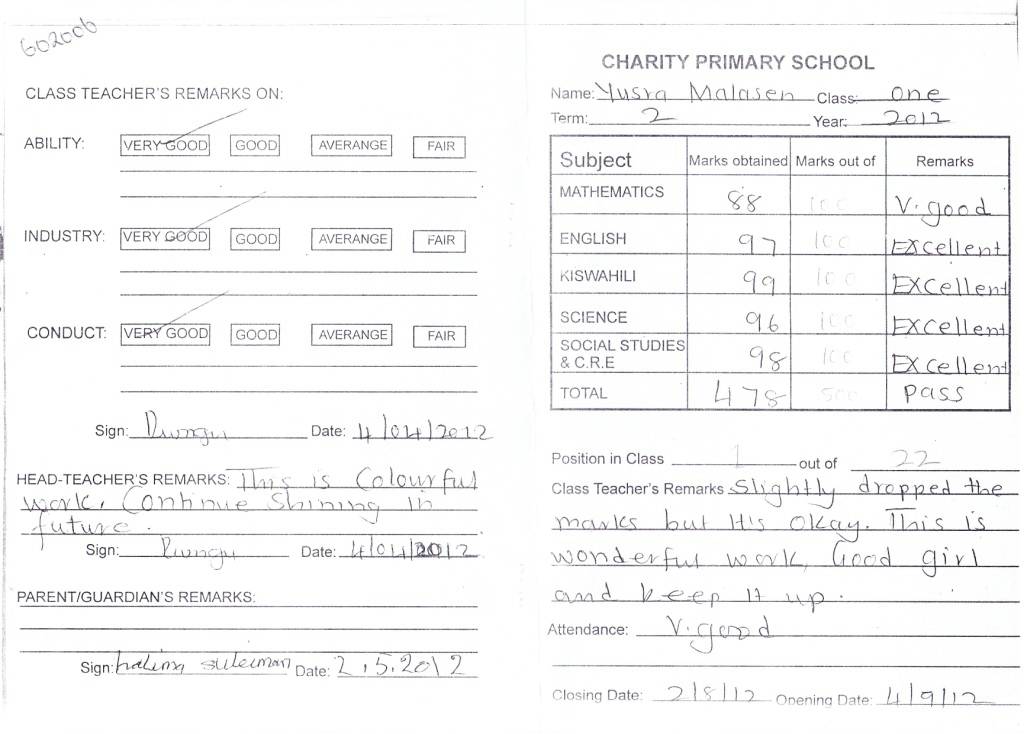 602006
CLASS TEACHER'S REMARKS ON:
ABILITY: VERY GOOD GOOD AVERANGE FAIR
INDUSTRY: VERY GOOD GOOD AVERANGE FAIR
CONDUCT: VERY GOOD GOOD AVERANGE FAIR
Sign: Date: 4/04/2012
HEAD-TEACHER'S REMARKS: This is Colourful
work. Continue Shining in
future.
Sign: Date: 4/04/2012
PARENT/GUARDIAN'S REMARKS:
Sign: halima suleiman Date: 2.5.2012
CHARITY PRIMARY SCHOOL
Name: Yusra Malasen Class: one
Term: 2 Year: 2012
Subject Marks obtained Marks out of Remarks
MATHEMATICS 88 100 V.good
ENGLISH 97 100 EXcellent
KISWAHILI 99 100 EXcellent
SCIENCE 96 100 EXcellent
SOCIAL STUDIES
& C.R.E 98 100 EXcellent
TOTAL 478 500 pass
Position in Class 1 out of 22
Class Teacher's Remarks Slightly dropped the
marks but It's Okay. This is
wonderful work, Good girl
and keep It up.
Attendance: V.good
Closing Date: 2/8/12 Opening Date: 4/9/12